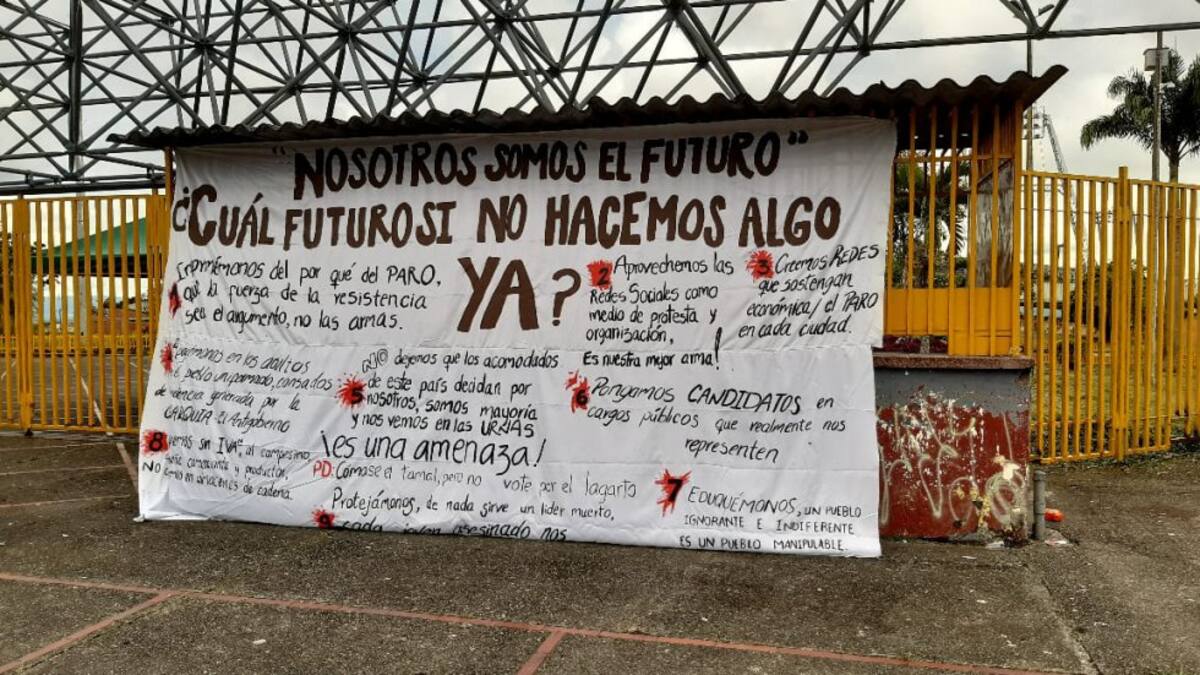 "NOSOTROS SOMOS EL FUTURO"
¿CUÁL FUTURO SI NO HACEMOS ALGO
YA?
del por qué del PARO,
que la fuerza de la resistencia
sea el argumento, no las armas.
2 Aprovechemos las
Redes Sociales como
medio de protesta y
organización,
Es nuestra mejor arma!
3 Creemos REDES
que sostengan
económica/ el PARO
en cada ciudad.
en los
pueblo uniformado, cansados
de violencia generada por la
El Antigobierno
5 NO dejemos que los acomodados
de este país decidan por
nosotros, somos mayoría
y nos vemos en las URNAS
¡es una amenaza!
PD: Cómase el tamal, pero no vote por el lagarto
6 Pongamos CANDIDATOS en
cargos públicos que realmente nos
representen
7 EDUQUÉMONOS, UN PUEBLO
IGNORANTE E INDIFERENTE
ES UN PUEBLO MANIPULABLE.
8 sin IVA", al campesino
comerciante y productor,
NO en almacenes de cadena.
9 Protejámonos, de nada sirve un líder muerto,
cada joven asesinado nos